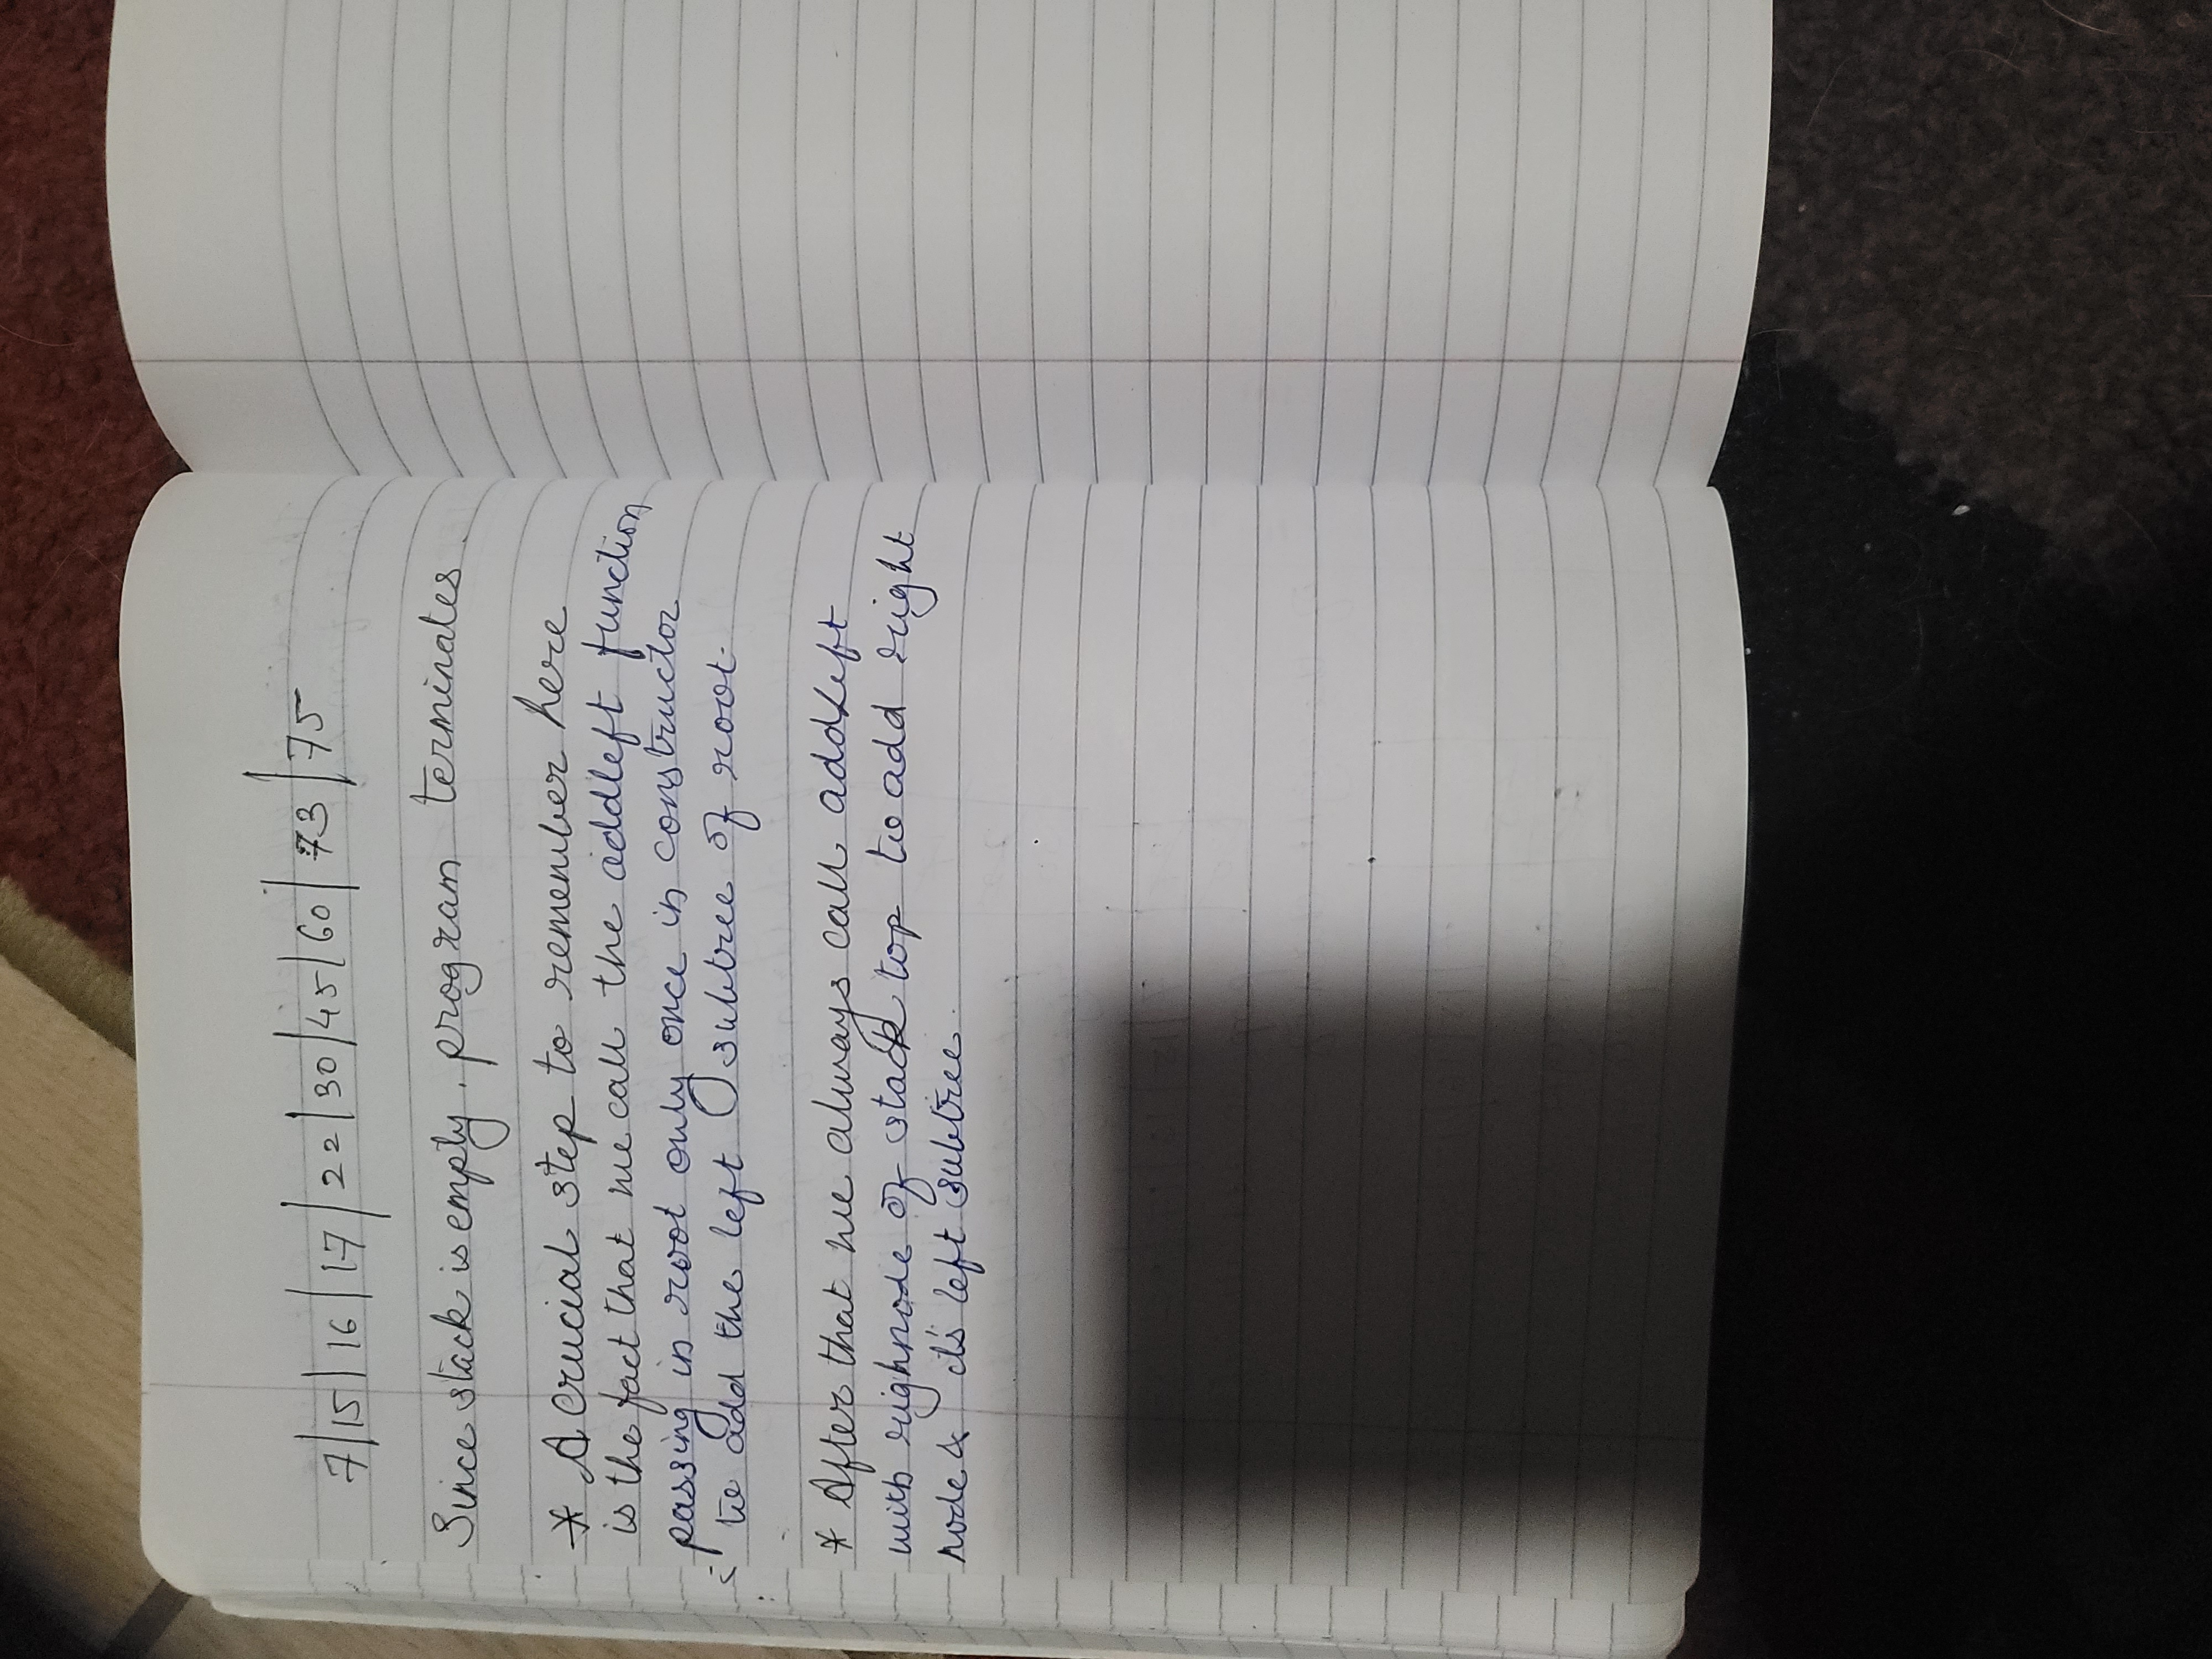 7|15|16|17|22|30|45|60|73|75
Since stack is empty. program terminates.
* A crucial step to remember here
is the fact that we call the addleft function
passing in root only once in constructor
to add the left subtree of root.
* After that we always call addLeft
with righnode of stack top to add right
node & it's left subtree.